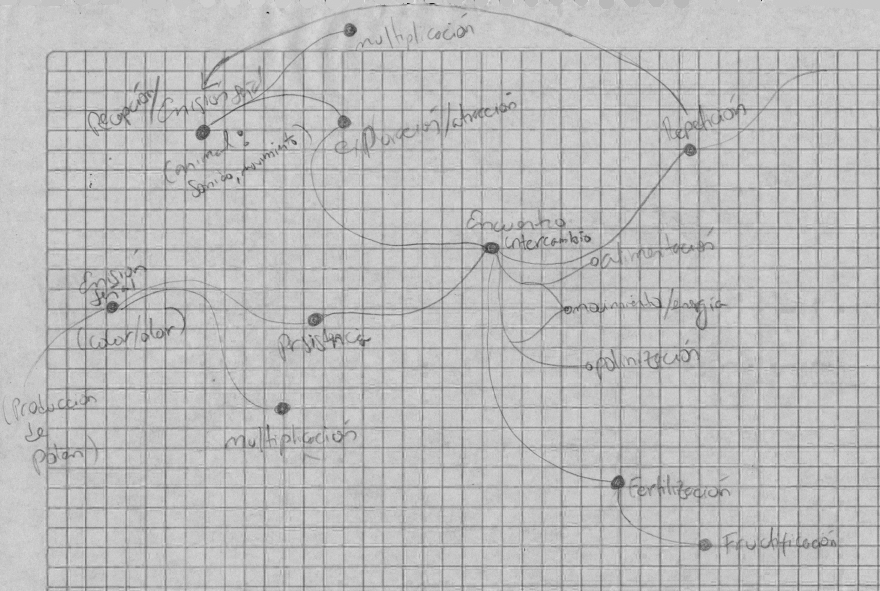 multiplicación
Recepción/Emisión señal
(animal:
Sonido, movimiento)
atracción
Repetición
Encuentro
intercambio
alimentación
movimiento/energía
polinización
Emisión
señal
(color/olor)
(Producción
de
polen)
multiplicación
Fertilización
Fructificación